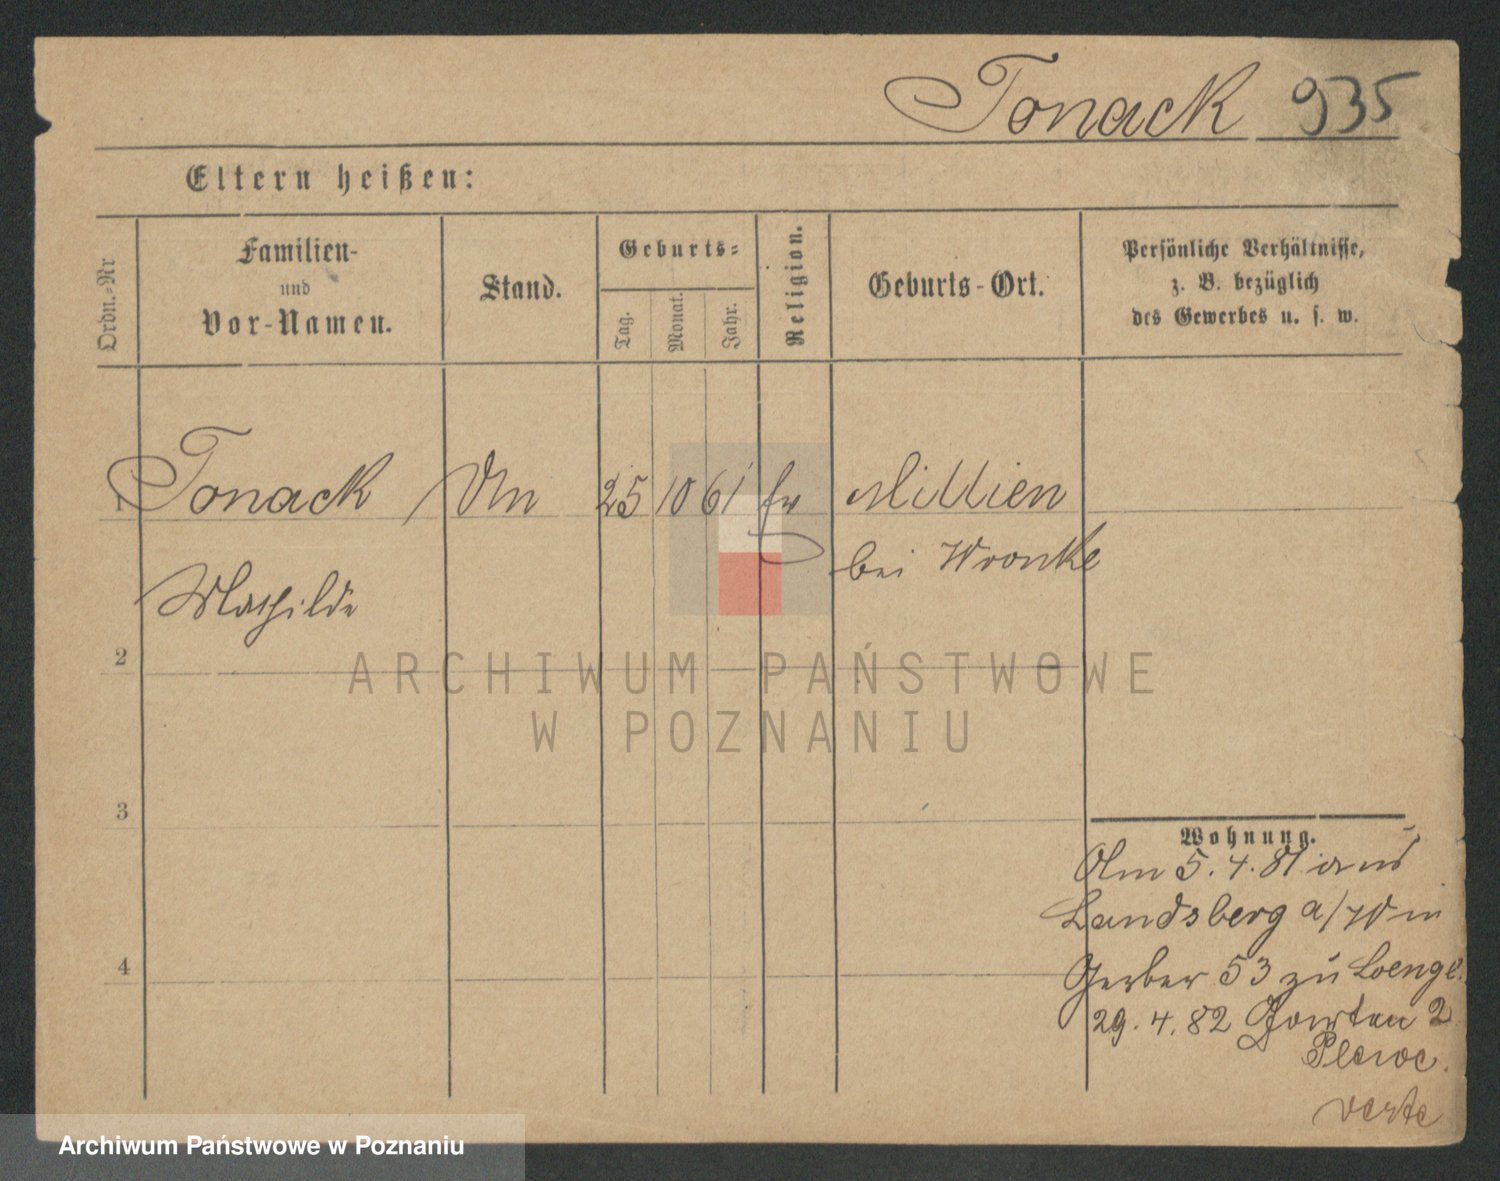 Tonack 935
Eltern heißen:
Ordn.-Nr
Familien-
und
Vor-Namen.
Stand.
Geburts-
Tag.
Monat.
Jahr.
Religion.
Geburts-Ort.
Persönliche Verhältnisse,
z. B. bezüglich
des Gewerbes u. s. w.
1 Tonack 25 10 61
bei Wronke
Mathilde
2
3
4
Wohnung.
Am 5. 4. 81 aus
Landsberg a/W in
Gerber 53 zu
29. 4. 82 Garten 2
verte
ARCHIWUM PAŃSTWOWE
W POZNANIU
Archiwum Państwowe w Poznaniu